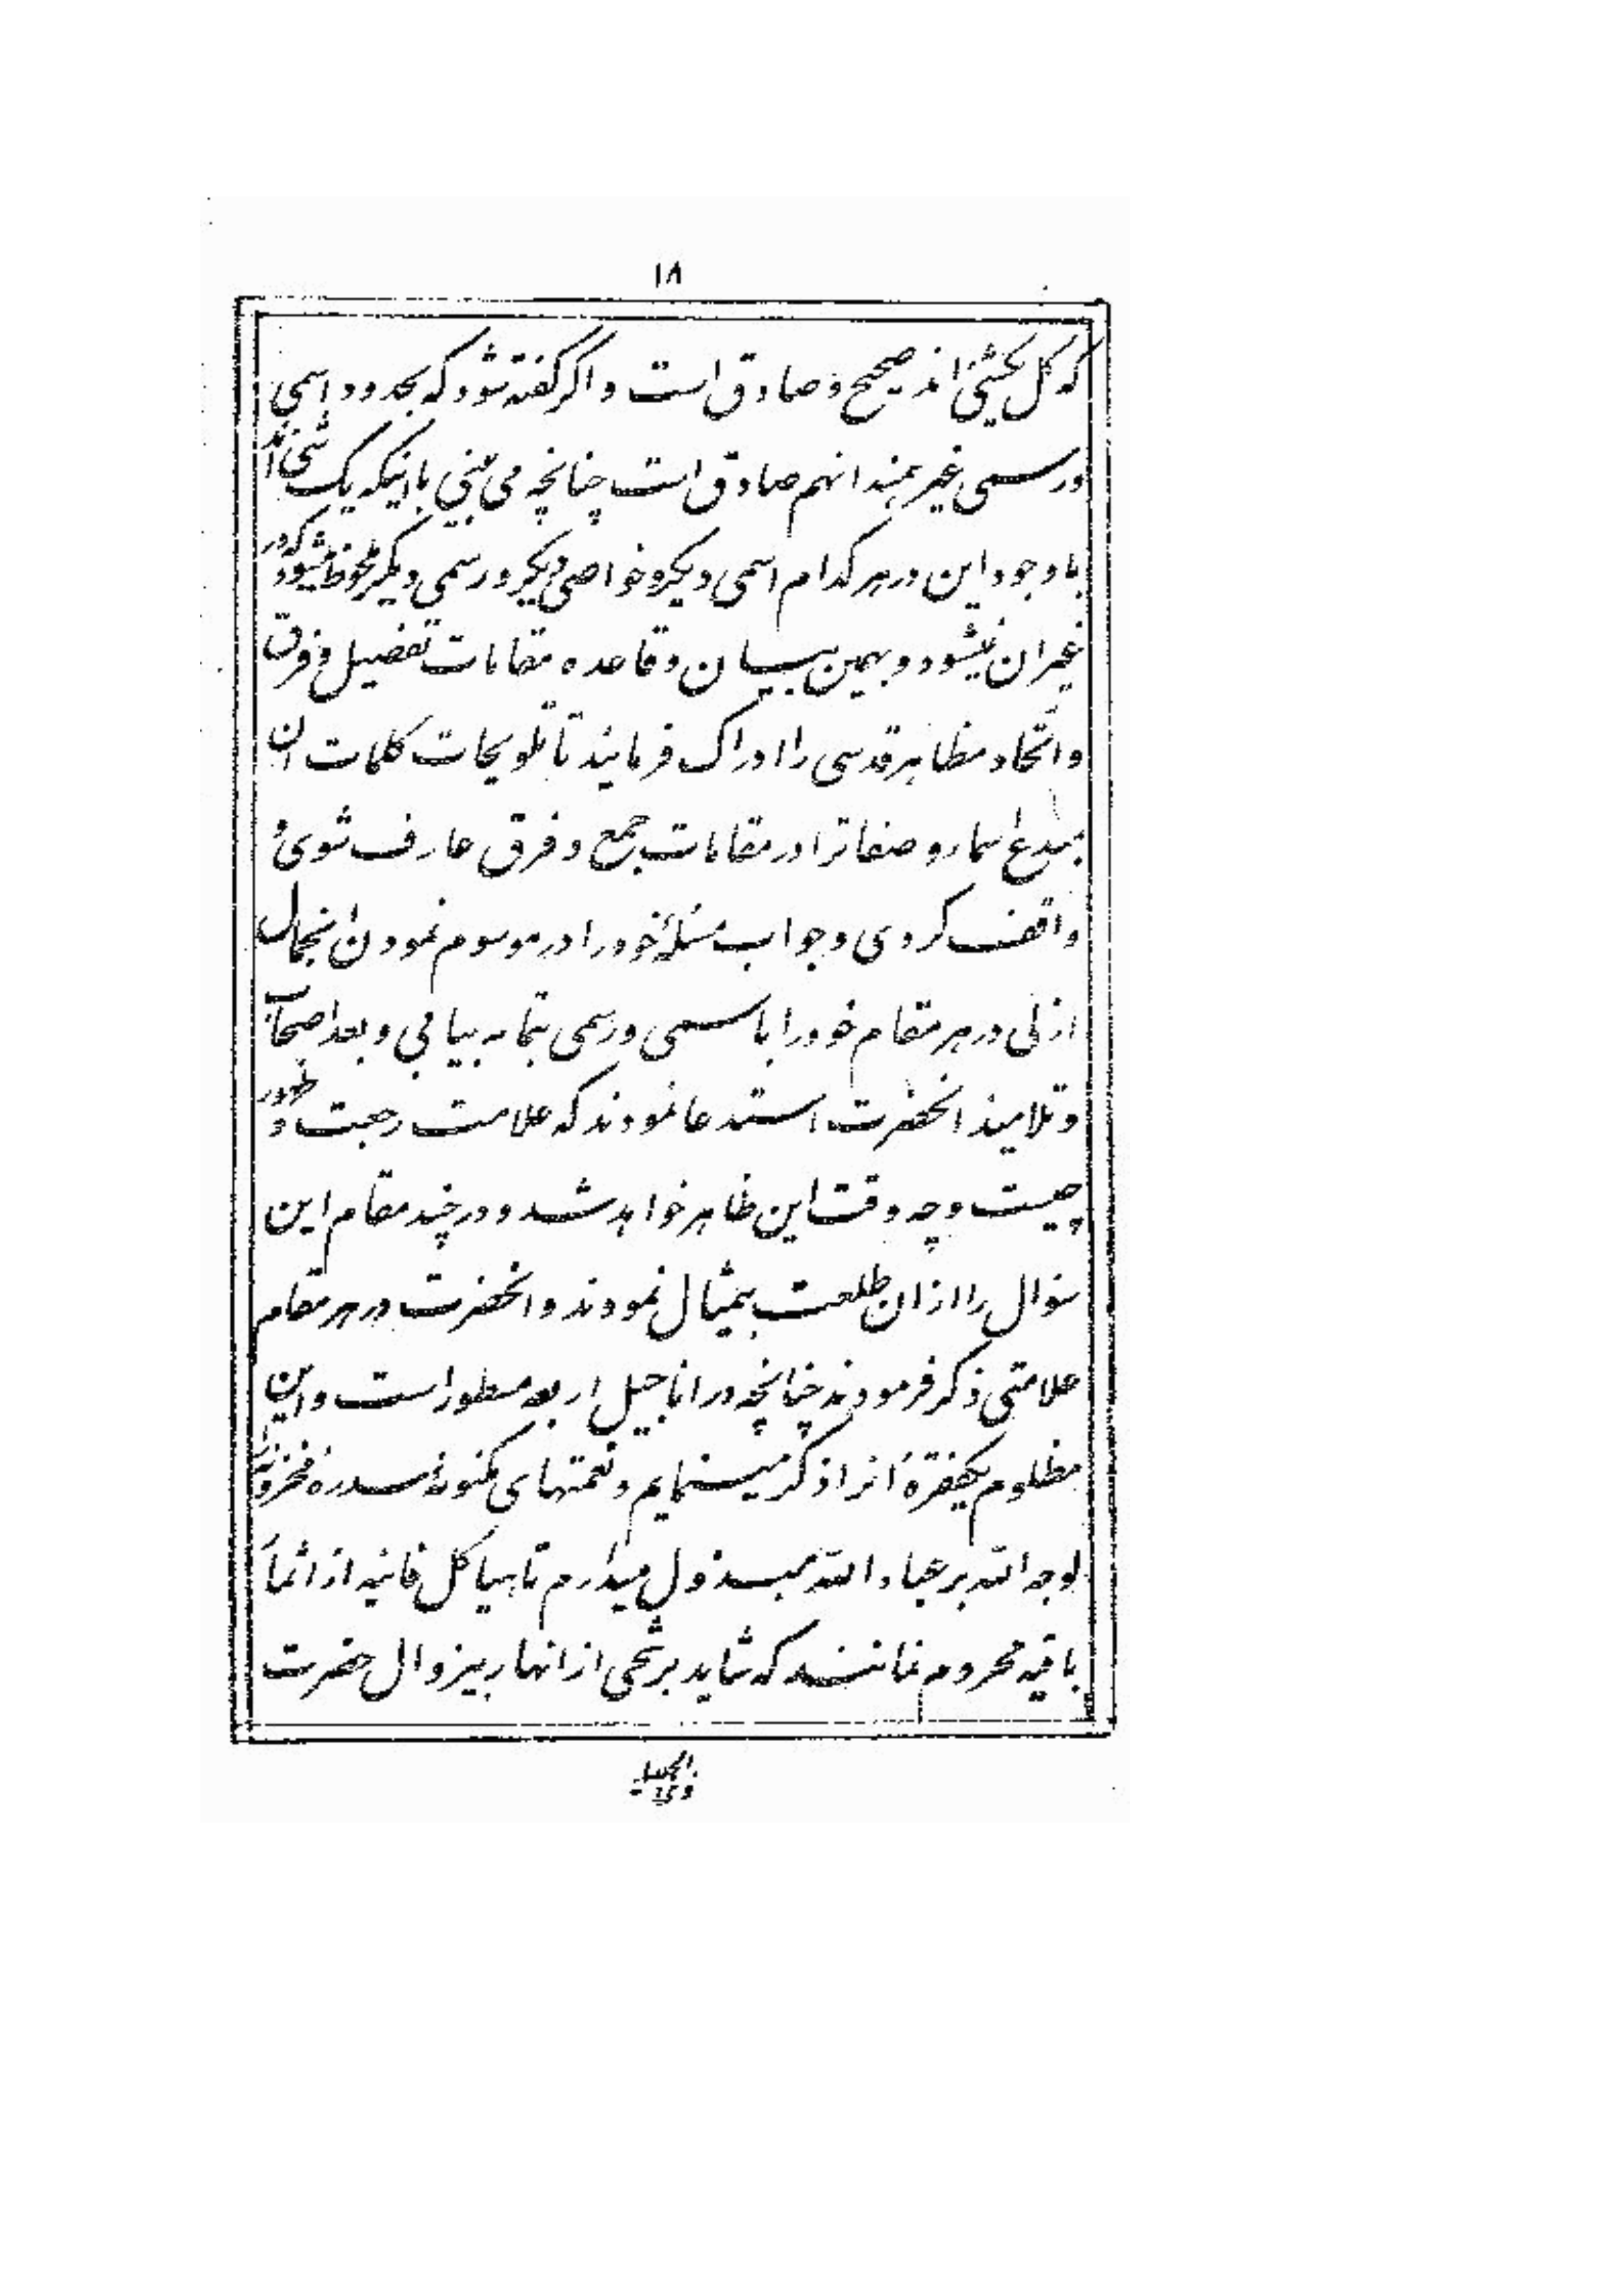 ۱۸
که کل یکشیئ اند صحیح و صادق است و اگر گفته شود که بحدود اسمی
و رسمی غیر همند انهم صادق است چنانچه می بینی با اینکه یک شئ اند
با وجود این در هر کدام اسمی دیگر و خواصی دیگر و رسمی دیگر ملحوظ میشود که در
غیر ان نمیشود و بهمین بیان و قاعده مقامات تفصیل و فرق
و اتحاد مظاهر قدسی را ادراک فرمایند تا تلویحات کلمات ان
مبدع اسما و صفاترا در مقامات جمع و فرق عارف شوی و
واقف گردی و جواب مسئله خود را در موسوم نمودن ان جمال
ازلی در هر مقام خود را باسمی و رسمی بتمامه بیابی و بعد اصحاب
و تلامیذ انحضرت استدعا نمودند که علامت رجعت و ظهور
چیست و چه وقت این ظاهر خواهد شد و در چند مقام این
سؤال را از ان طلعت بیمثال نمودند و انحضرت در هر مقام
علامتی ذکر فرمودند چنانچه در اناجیل اربعه مسطور است و این
مظلوم یکفقرهٔ انرا ذکر مینمایم و نعمتهای مکنونهٔ سدرهٔ مخزونه را
لوجه الله بر عباد الله مبذول میدارم تا هیاکل فانیه از اثمار
باقیه محروم نمانند که شاید برشحی از انهار بیزوال حضرت
ذی الجلال